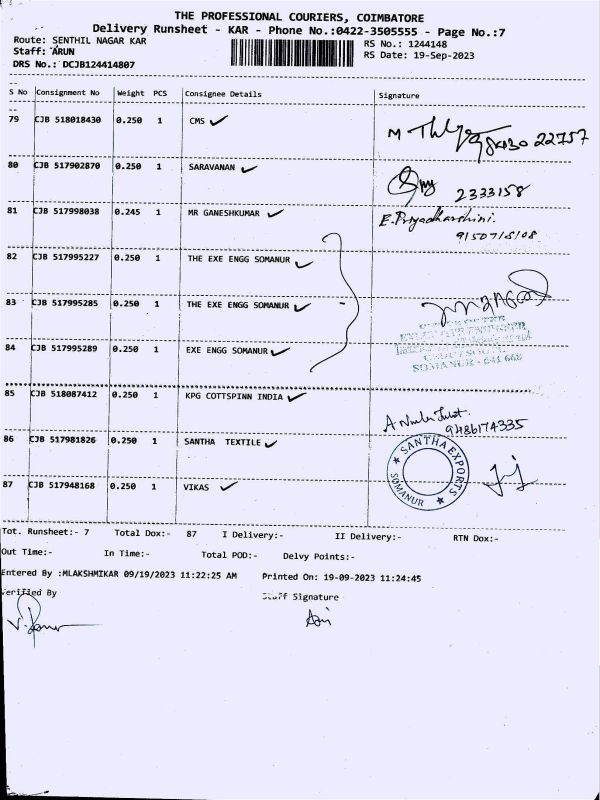 THE PROFESSIONAL COURIERS, COIMBATORE
Delivery Runsheet - KAR - Phone No.:0422-3505555 - Page No.:7
Route: SENTHIL NAGAR KAR
RS No.: 1244148
Staff: ARUN
RS Date: 19-Sep-2023
DRS No.: DCJB124414807
S No Consignment No Weight PCS Consignee Details Signature
79 CJB 518018430 0.250 1 CMS ✓
22757
80 CJB 517902870 0.250 1 SARAVANAN ✓
2333158
81 CJB 517998038 0.245 1 MR GANESHKUMAR ✓ E. Priyadharshini.
82 CJB 517995227 0.250 1 THE EXE ENGG SOMANUR ✓
83 CJB 517995285 0.250 1 THE EXE ENGG SOMANUR ✓
84 CJB 517995289 0.250 1 EXE ENGG SOMANUR ✓
SOMANUR - 641 668
85 CJB 518087412 0.250 1 KPG COTTSPINN INDIA ✓
9486174335
86 CJB 517981826 0.250 1 SANTHA TEXTILE ✓
SANTHA EXPORTS
SOMANUR
87 CJB 517948168 0.250 1 VIKAS ✓
Tot. Runsheet:- 7 Total Dox:- 87 I Delivery:- II Delivery:- RTN Dox:-
Out Time:- In Time:- Total POD:- Delvy Points:-
Entered By :MLAKSHMIKAR 09/19/2023 11:22:25 AM Printed On: 19-09-2023 11:24:45
Verified By Staff Signature